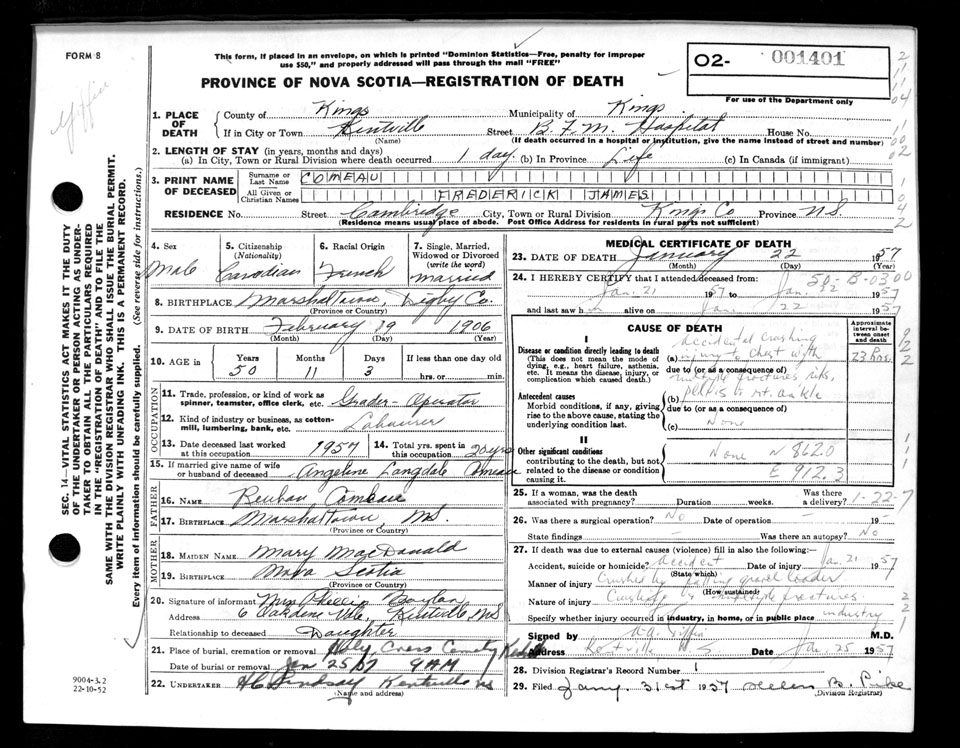 FORM 8
This form, if placed in an envelope, on which is printed "Dominion Statistics—Free, penalty for improper
use $50," and properly addressed will pass through the mail "FREE"
PROVINCE OF NOVA SCOTIA—REGISTRATION OF DEATH
02- 001401
For use of the Department only
Giffin
SEC. 14—VITAL STATISTICS ACT MAKES IT THE DUTY
OF THE UNDERTAKER OR PERSON ACTING AS UNDER-
TAKER TO OBTAIN ALL THE PARTICULARS REQUIRED
IN THE "REGISTRATION OF DEATH" AND TO FILE THE
SAME WITH THE DIVISION REGISTRAR WHO SHALL ISSUE THE BURIAL PERMIT.
WRITE PLAINLY WITH UNFADING INK. THIS IS A PERMANENT RECORD.
Every item of information should be carefully supplied. (See reverse side for instructions.)
1. PLACE OF DEATH
County of Kings Municipality of Kings
If in City or Town Kentville Street B.F.M. Hospital House No.
(Name) (If death occurred in a hospital or institution, give the name instead of street and number)
2. LENGTH OF STAY (in years, months and days)
(a) In City, Town or Rural Division where death occurred 1 day. (b) In Province Life (c) In Canada (if immigrant)
3. PRINT NAME OF DECEASED
Surname or Last Name COMEAU
All Given or Christian Names FREDERICK JAMES
RESIDENCE No. Street Cambridge City, Town or Rural Division Kings Co Province N.S.
(Residence means usual place of abode. Post Office Address for residents in rural parts not sufficient)
4. Sex Male
5. Citizenship (Nationality) Canadian
6. Racial Origin French
7. Single, Married, Widowed or Divorced (write the word) married
8. BIRTHPLACE Marshaltown, Digby Co.
(Province or Country)
9. DATE OF BIRTH February 19 1906
(Month) (Day) (Year)
10. AGE in Years 50 Months 11 Days 3 If less than one day old hrs. or min.
OCCUPATION
11. Trade, profession, or kind of work as spinner, teamster, office clerk, etc. Grader-Operator
12. Kind of industry or business, as cotton-mill, lumbering, bank, etc. Labourer
13. Date deceased last worked at this occupation 1957
14. Total yrs. spent in this occupation 20 yrs
15. If married give name of wife or husband of deceased Angeline Langdale Comeau
FATHER
16. NAME Reuban Comeau
17. BIRTHPLACE Marshaltown, N.S.
(Province or Country)
MOTHER
18. MAIDEN NAME Mary MacDonald
19. BIRTHPLACE Nova Scotia
(Province or Country)
20. Signature of informant Mrs Phillip
Address 6 Gardens Vale, Kentville NS
Relationship to deceased Daughter
21. Place of burial, cremation or removal Holy Cross Cemetery
Date of burial or removal Jan 25/57 9 AM
22. UNDERTAKER H C Lindsay Kentville NS
(Name and address)
9004-3.2
22-10-52
MEDICAL CERTIFICATE OF DEATH
23. DATE OF DEATH January 22 1957
(Month) (Day) (Year)
24. I HEREBY CERTIFY that I attended deceased from 592-B-0300
Jan. 21 1957 Jan. 22 1957
and last saw h alive on Jan 22 1957
CAUSE OF DEATH
Approximate interval between onset and death
I
Disease or condition directly leading to death
(This does not mean the mode of dying, e.g., heart failure, asthenia, etc. It means the disease, injury, or complication which caused death.)
(a) accidental crushing injury to chest with 23 hrs.
due to (or as a consequence of)
multiple fractures ribs,
Antecedent causes
Morbid conditions, if any, giving rise to the above cause, stating the underlying condition last.
(b) pelvis & rt. ankle
due to (or as a consequence of)
(c) None
II
Other significant conditions
contributing to the death, but not related to the disease or condition causing it.
None N 862.0
E 912.3
25. If a woman, was the death associated with pregnancy? Duration weeks. Was there a delivery? 1-22-7
26. Was there a surgical operation? No Date of operation 19
State findings Was there an autopsy? No
27. If death was due to external causes (violence) fill in also the following:—
Accident, suicide or homicide? accident Date of injury Jan. 21 1957
(State which)
Manner of injury Crushed by falling gravel loader
(How sustained)
Nature of injury Crushing & multiple fractures
Specify whether injury occurred in industry, in home, or in public place industry
Signed by A.A. Giffin M.D.
Address Kentville N S Date Jan. 25 1957
28. Division Registrar's Record Number 1
29. Filed Jany. 31st 1957 Helen B. Pike
(Division Registrar)